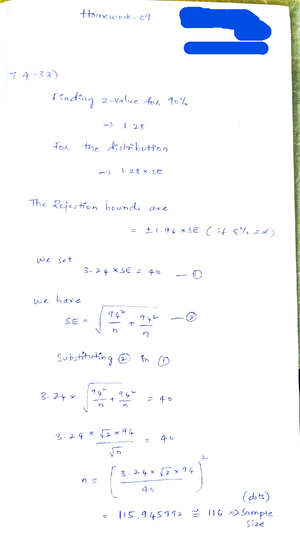 Homework-09
7 4-33)
Finding z-value for 90%
=> 1.28
for the distribution
→ 1.28 x SE
The Rejection bounds are
= ± 1.96 x SE ( if 5% = α )
We set
3.24 x SE = 40 — ①
We have
SE = √(94²/n + 94²/n) — ②
Substituting ② in ①
3.24 x √(94²/n + 94²/n) = 40
3.24 x √2 x 94 / √n = 40
n = [ 3.24 x √2 x 94 / 40 ]²
(plots)
= 115.945992 ≅ 116 => Sample
size